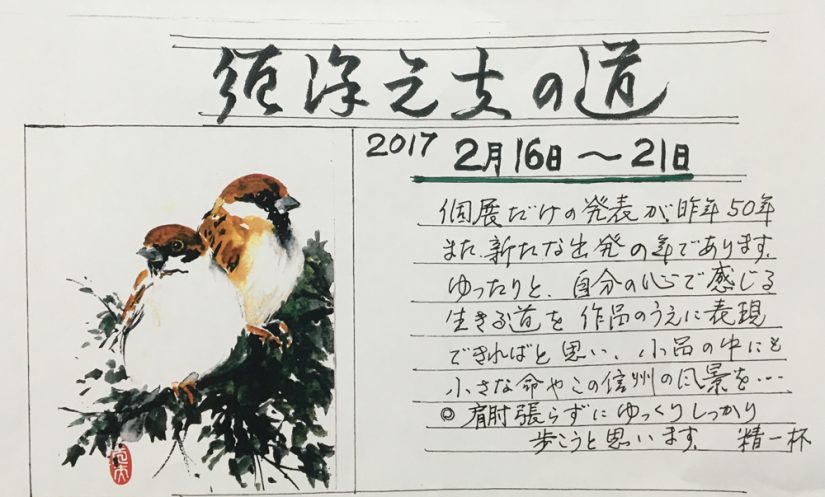 の道
2017 2月16日〜21日
個展だけの発表が昨年50年
また新たな出発の年であります。
ゆったりと、自分の心で感じる
生きる道を作品のうえに表現
できればと思い、小品の中にも
小さな命やこの信州の風景を…
◎肩肘張らずにゆっくりしっかり
歩こうと思います。 精一杯